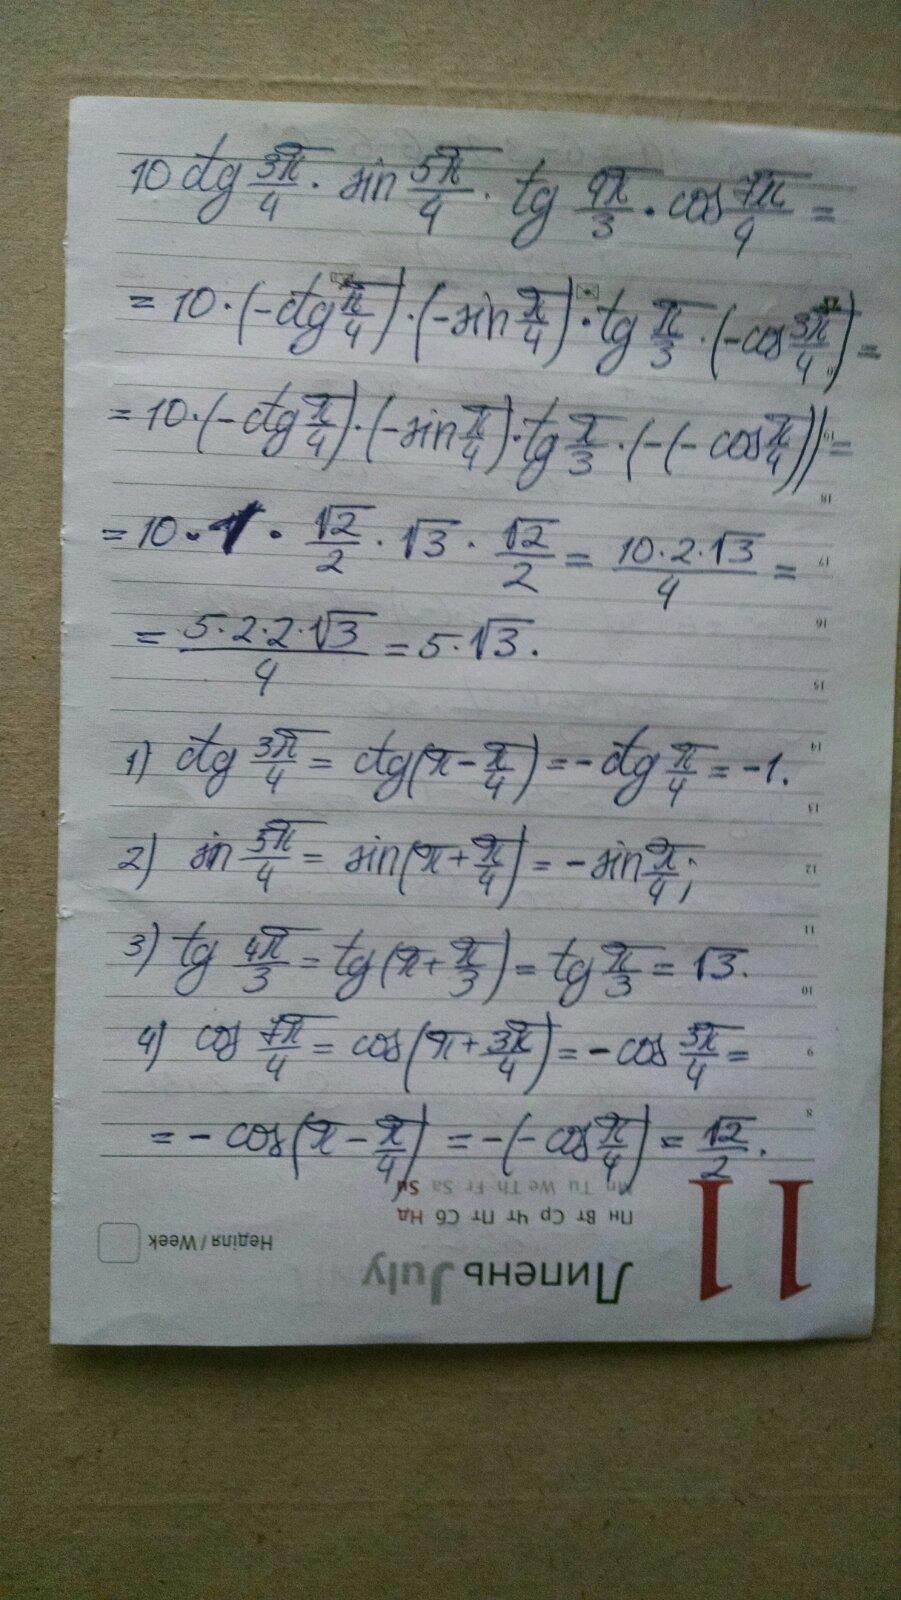 10 ctg 3π/4 · sin 5π/4 · tg 4π/3 · cos 7π/4 =
= 10 · (-ctg π/4) · (-sin π/4) · tg π/3 · (-cos 3π/4) =
= 10 · (-ctg π/4) · (-sin π/4) · tg π/3 · (-(-cos π/4)) =
= 10 · 1 · √2/2 · √3 · √2/2 = 10·2·√3/4 =
= 5·2·2·√3/4 = 5·√3.
1) ctg 3π/4 = ctg(π - π/4) = -ctg π/4 = -1.
2) sin 5π/4 = sin(π + π/4) = -sin π/4;
3) tg 4π/3 = tg(π + π/3) = tg π/3 = √3.
4) cos 7π/4 = cos(π + 3π/4) = -cos 3π/4 =
= -cos(π - π/4) = -(-cos π/4) = √2/2.
19
18
17
16
15
14
13
12
11
10
9
8
Mn Tu We Th Fr Sa Su
Пн Вт Ср Чт Пт Сб Нд
Неділя / Week
Липень July
11